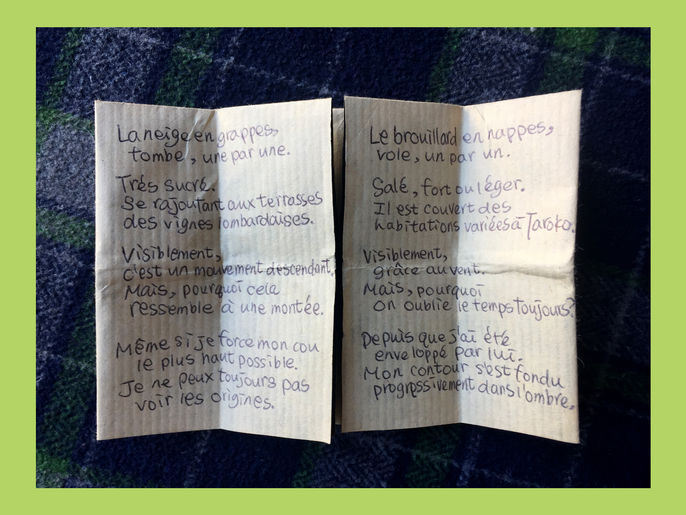 La neige en grappes,
tombe, une par une.
Trés sucré.
Se rajoutant aux terrasses
des vignes lombardaises.
Visiblement,
c'est un mouvement descendant,
Mais, pourquoi cela
ressemble à une montée.
Même si je force mon cou
le plus haut possible.
Je ne peux toujours pas
voir les origines.
Le brouillard en nappes,
vole, un par un.
Salé, fort ou léger.
Il est couvert des
habitations variées à Taroko.
Visiblement,
grâce au vent.
Mais, pourquoi
on oublie le temps toujours?
Depuis que j'ai été
enveloppé par lui.
Mon contour s'est fondu
progressivement dans l'ombre.